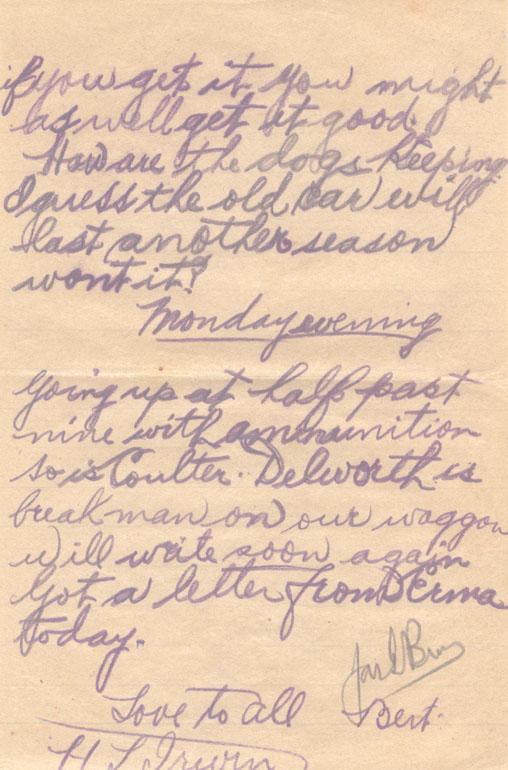 if you get it you might
as well get it good.
How are the dogs keeping
I guess the old car will
last another season
wont it?
Monday evening
Going up at half past
nine with ammunition
so is Coulter. Delworth is
breakman on our waggon
will write soon again
Got a letter from Erma
today.
Love to all Bert.
H L Irwin